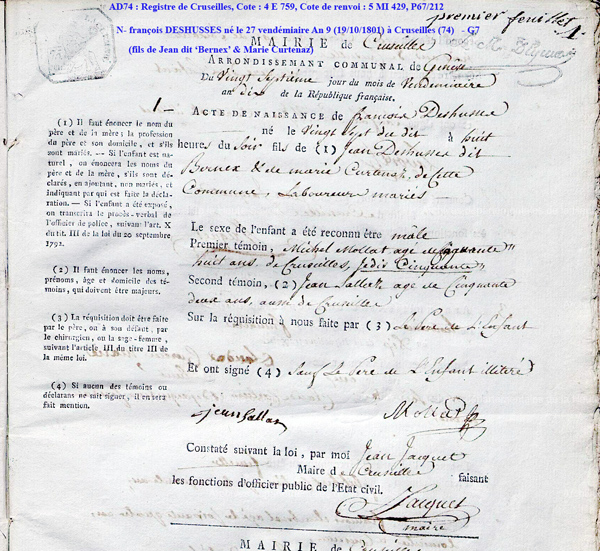 AD74 : Registre de Cruseilles, Cote : 4 E 759, Cote de renvoi : 5 MI 429, P67/212
premier feuillet
1
N- françois DESHUSSES né le 27 vendémiaire An 9 (19/10/1801) à Cruseilles (74) - G7
(fils de Jean dit ‘Bernex’ & Marie Curtenaz)
MAIRIE de Cruseille
ARRONDISSEMENT COMMUNAL de Genève
Du Vingt Septième jour du mois de Vendemiaire
an dix de la République française.
1.
ACTE DE NAISSANCE de françois Deshusse
né le Vingt Sept du dit à huit
heures du Soir fils de (1) Jean Deshusses dit
Bernex & de marie Curtenaz, de Cette
Commune, Laboureurs mariés
Le sexe de l'enfant a été reconnu être mâle
Premier témoin, Michel Mollat agé de
huit ans. de Cruseilles, je dis Cinquante
Second témoin, (2) Jean Lallaz age de Cinquante
deux ans, aussi de Cruseille
Sur la réquisition à nous faite par (3) Le Pere de L'Enfant
Et ont signé (4) Sauf Le Pere de L'Enfant illiteré
jean Lallaz
Mollat
Constaté suivant la loi, par moi Jean Jacquet
Maire de Cruseille faisant
les fonctions d'officier public de l'Etat civil.
Jacquet
maire
(1) Il faut énoncer le nom du
père et de la mère; la profession
du père et son domicile, et s'ils
sont mariés. — Si l'enfant est na-
turel, on énoncera les noms du
père et de la mère, s'ils sont dé-
clarés, en ajoutant, non mariés, et
indiquant par qui est faite la décla-
ration. — Si l'enfant a été exposé,
on transcrira le procès-verbal de
l'officier de police, suivant l'art. X
du tit. III de la loi du 20 septembre
1792.
(2) Il faut énoncer les noms,
prénoms, âge et domicile des té-
moins, qui doivent être majeurs.
(3) La réquisition doit être faite
par le père, ou à son défaut, par
le chirurgien, ou la sage-femme,
suivant l'article III du titre III de
la même loi.
(4) Si aucun des témoins ou
déclarans ne sait signer, il en sera
fait mention.
MAIRIE de Cruseille